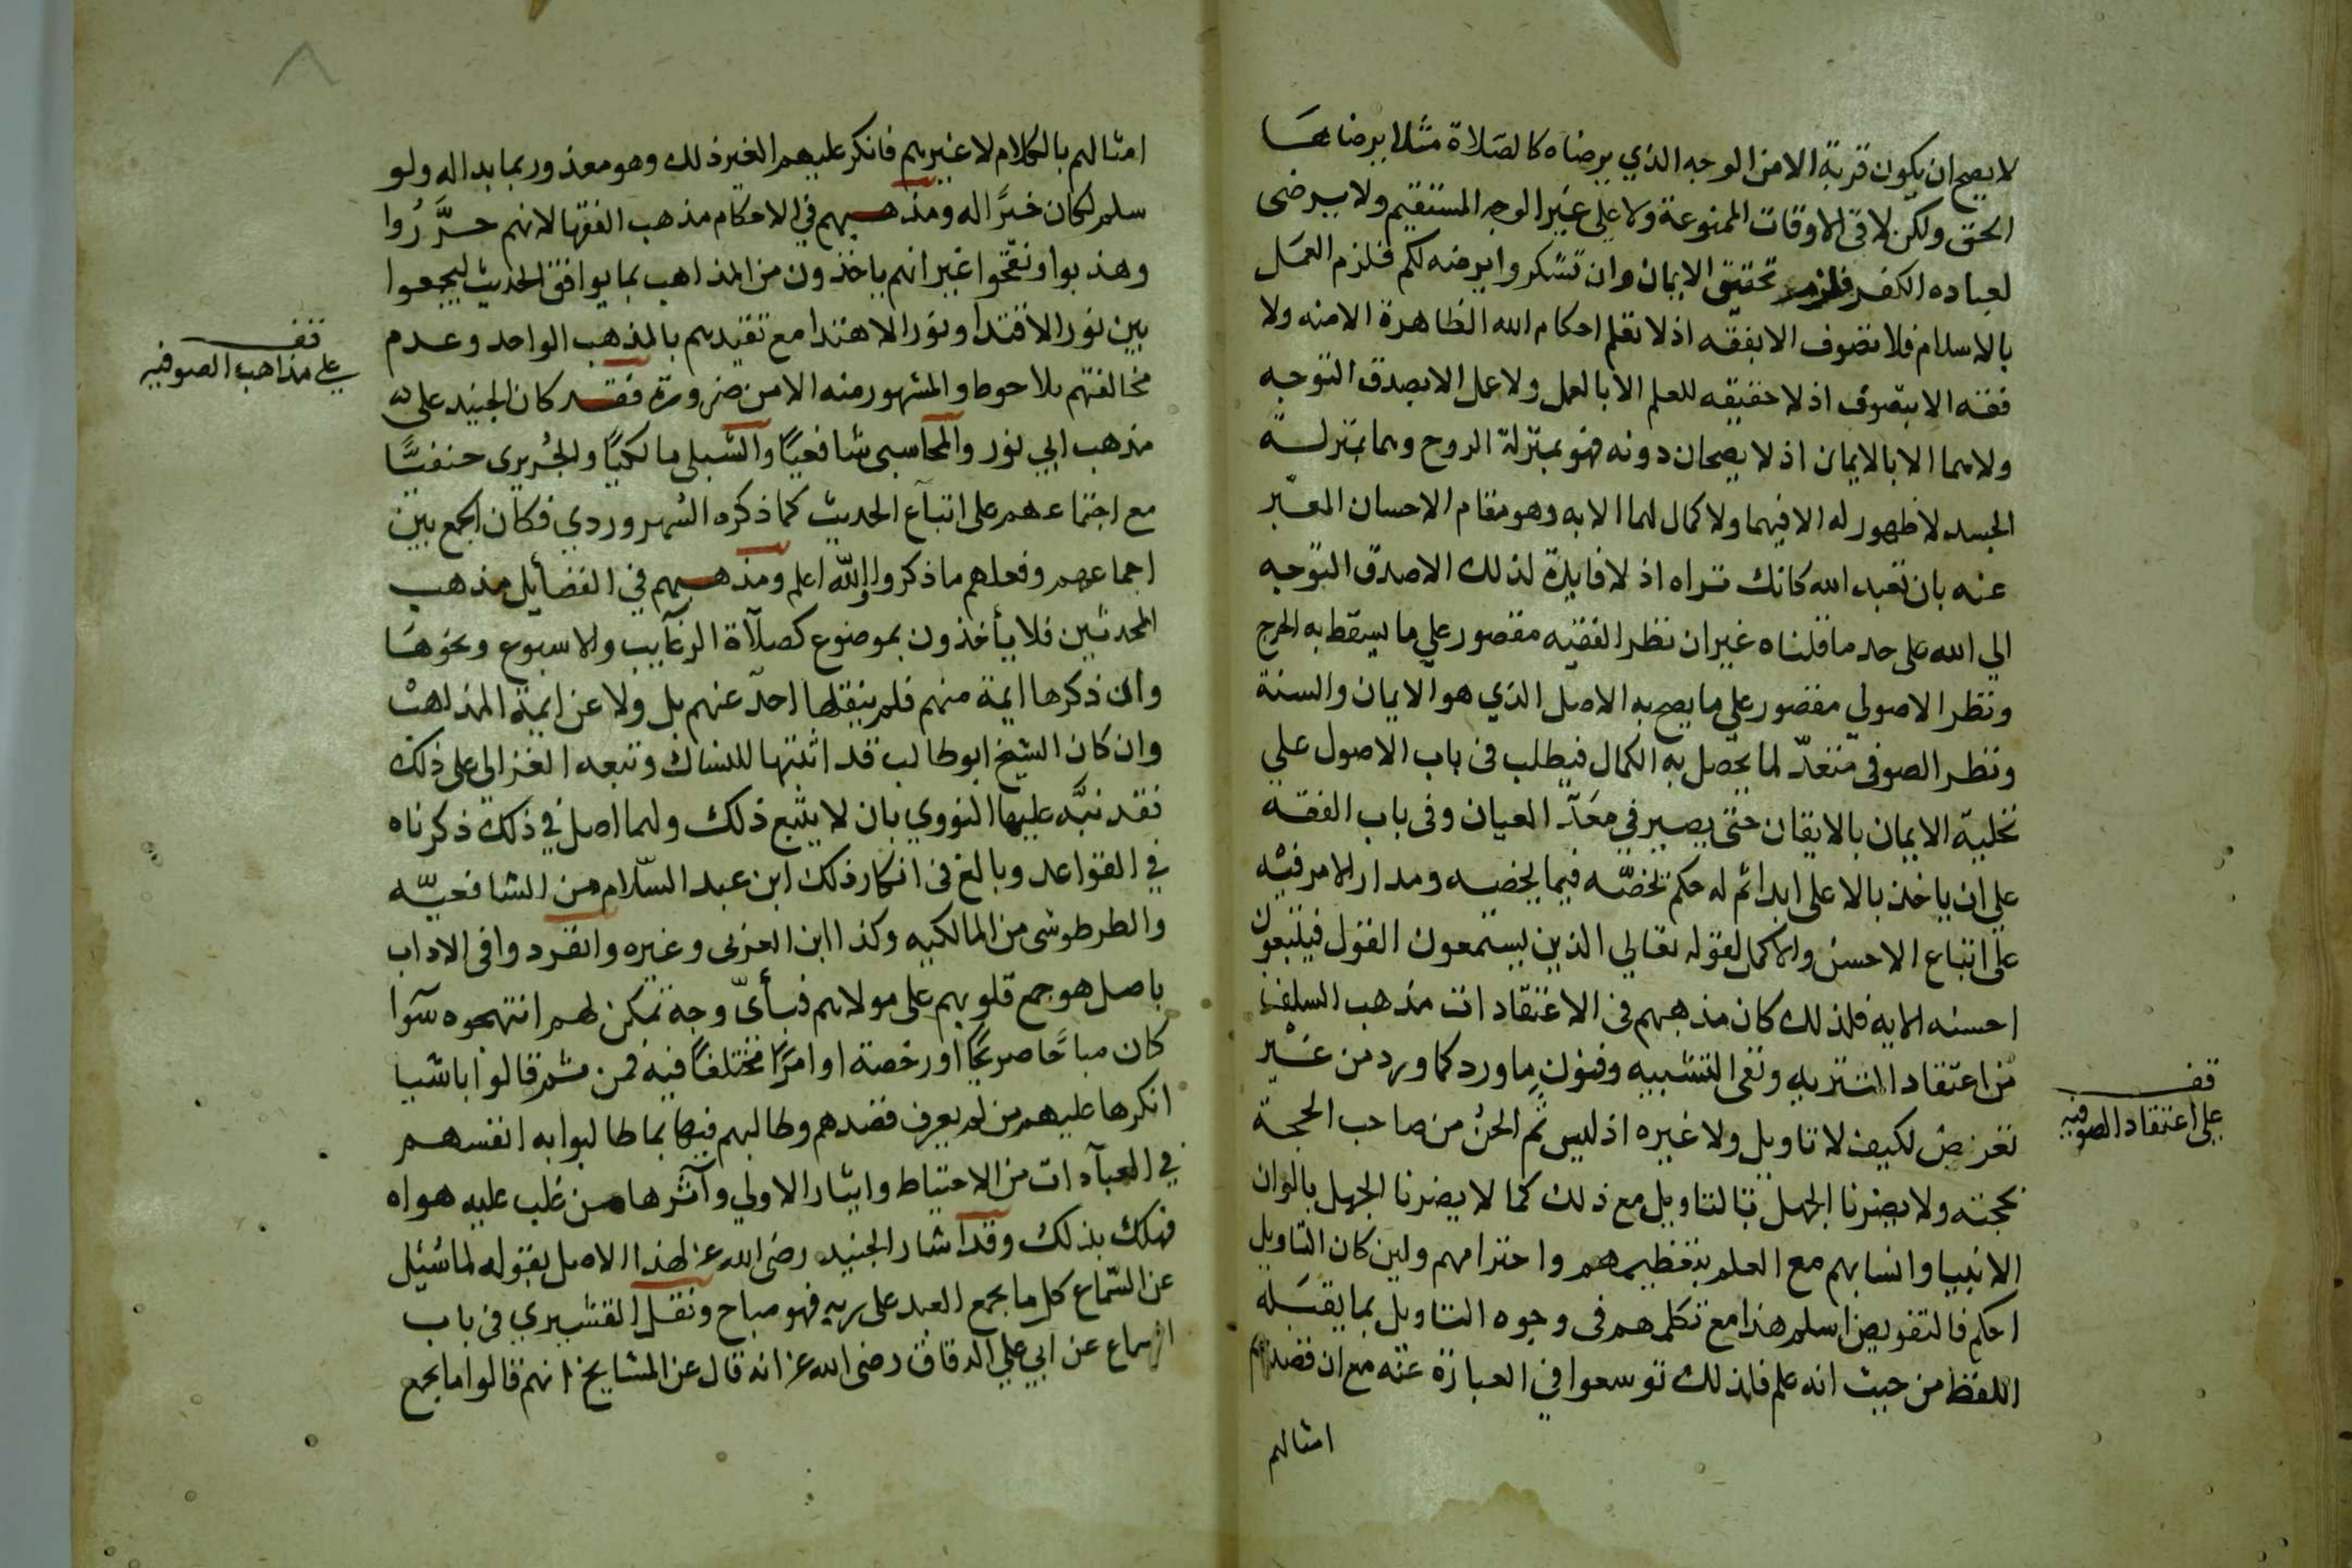 لا يصح ان يكون قربة الا من الوجه الذي يرضاه كالصلاة مثلا يرضاها
الحق ولكن لا في الاوقات الممنوعة ولا على غير الوجه المستقيم ولا يرضى
لعباده الكفر فلزم تحقيق الايمان وان تشكروا يرضه لكم فلزم العمل
بالاسلام فلا تصوف الا بفقه اذ لا تعلم احكام الله الظاهرة الا منه ولا
فقه الا بتصوف اذ لا حقيقه للعلم الا بالعمل ولا عمل الا بصدق التوجه
ولا هما الا بالايمان اذ لا يصحان دونه فهو بمنزلة الروح وهما بمنزلة
الجسد لا ظهور له الا فيهما ولا كمال لهما الا به وهو مقام الاحسان المعبر
عنه بان تعبد الله كانك تراه اذ لا فايدة لذلك الا صدق التوجه
الي الله على حد ما قلناه غير ان نظر الفقيه مقصور علي ما يسقط به الحرج
ونظر الاصولي مقصور علي ما يصح به الاصل الذي هو الايمان والسنة
ونظر الصوفي متعدّ لما يحصل به الكمال فيطلب في باب الاصول علي
تحلية الايمان بالايقان حتى يصير في معد العيان وفي باب الفقه
علي ان ياخذ بالاعلى ابدا ثم له حكم تخصّه فيما يخصه ومدار الامر فيه
على اتباع الاحسن والاكمل لقوله تعالي الذين يستمعون القول فيتبعون
احسنه الايه فلذلك كان مذهبهم في الاعتقادات مذهب السلف
من اعتقاد التنزيه ونفي التشبيه وقبول ما ورد كما ورد من غير
تعرض لكيف لا تاويل ولا غيره اذ ليس ثم الحن من صاحب الحجة
بحجته ولا يضرنا الجهل بالتاويل مع ذلك كما لا يضرنا الجهل بالوان
الانبيا وانسابهم مع العلم بتعظيمهم واحترامهم ولين كان التاويل
احكم فالتفويض اسلم هذا مع تكلمهم في وجوه التاويل بما يقبله
اللفظ من حيث انه علم فلذلك توسعوا في العبارة عنه مع ان قصدهم
امثالهم
قف
على اعتقاد الصوفيه
امثالهم بالكلام لا غيرهم فانكر عليهم الغير ذلك وهو معذور بما بدا له ولو
سلم لكان خيرًا له ومذهبهم في الاحكام مذهب الفقها لانهم حرَّرُوا
وهذبوا ونقّحوا غير انهم ياخذون من المذاهب بما يوافق الحديث ليجمعوا
بين نور الاقتدا ونور الاهتدا مع تقيدهم بالمذهب الواحد وعدم
مخالفتهم بلاحوط والمشهور منه الا من ضرورة فقد كان الجنيد على
مذهب ابي ثور والمحاسبي شافعيًا والشبلي مالكيًا والجُريري حنفيًّا
مع اجتماعهم على اتباع الحديث كما ذكره السهروردي فكان الجمع بين
اجماعهم وفعلهم ما ذكروا والله اعلم ومذهبهم في الفضائيل مذهب
المحدثين فلا يأخذون بموضوع كصلاة الرغايب والاسبوع ونحوها
وان ذكرها ايمة منهم فلم ينقلها احد عنهم بل ولا عن ايمة المذاهب
وان كان الشيخ ابو طالب قد اثبتها للنساك وتبعه الغزالي على ذلك
فقد نبَّه عليها النووي بان لا يتبع ذلك ولهما اصل في ذلك ذكرناه
في القواعد وبالغ في انكار ذلك ابن عبد السّلام من الشافعيّه
والطرطوشي من المالكيه وكذا ابن العربي وغيره وانفردوا في الاداب
باصل هو جمع قلوبهم على مولاهم فبأيّ وجه تمكن لهم انتهجوه سوآ
كان مباحًا صريحًا او رخصة او امرًا مختلفًا فيه فمن ثم قالوا باشيا
انكرها عليهم من لم يعرف قصدهم وطالبهم فيها بما طالبوا به انفسهم
في العبادات من الاحتياط وايثار الاولي وآثرها من غلب عليه هواه
فهلك بذلك وقد اشار الجنيد رضى الله عنه لهذا الاصل بقوله لما سُئيل
عن السّماع كل ما يجمع العبد على ربه فهو مباح ونقل القشيري في باب
السماع عن ابي علي الدقاق رضى الله عنه انه قال عن المشايخ انهم قالوا ما يجمع
قف
على مذاهب الصوفيه
٨